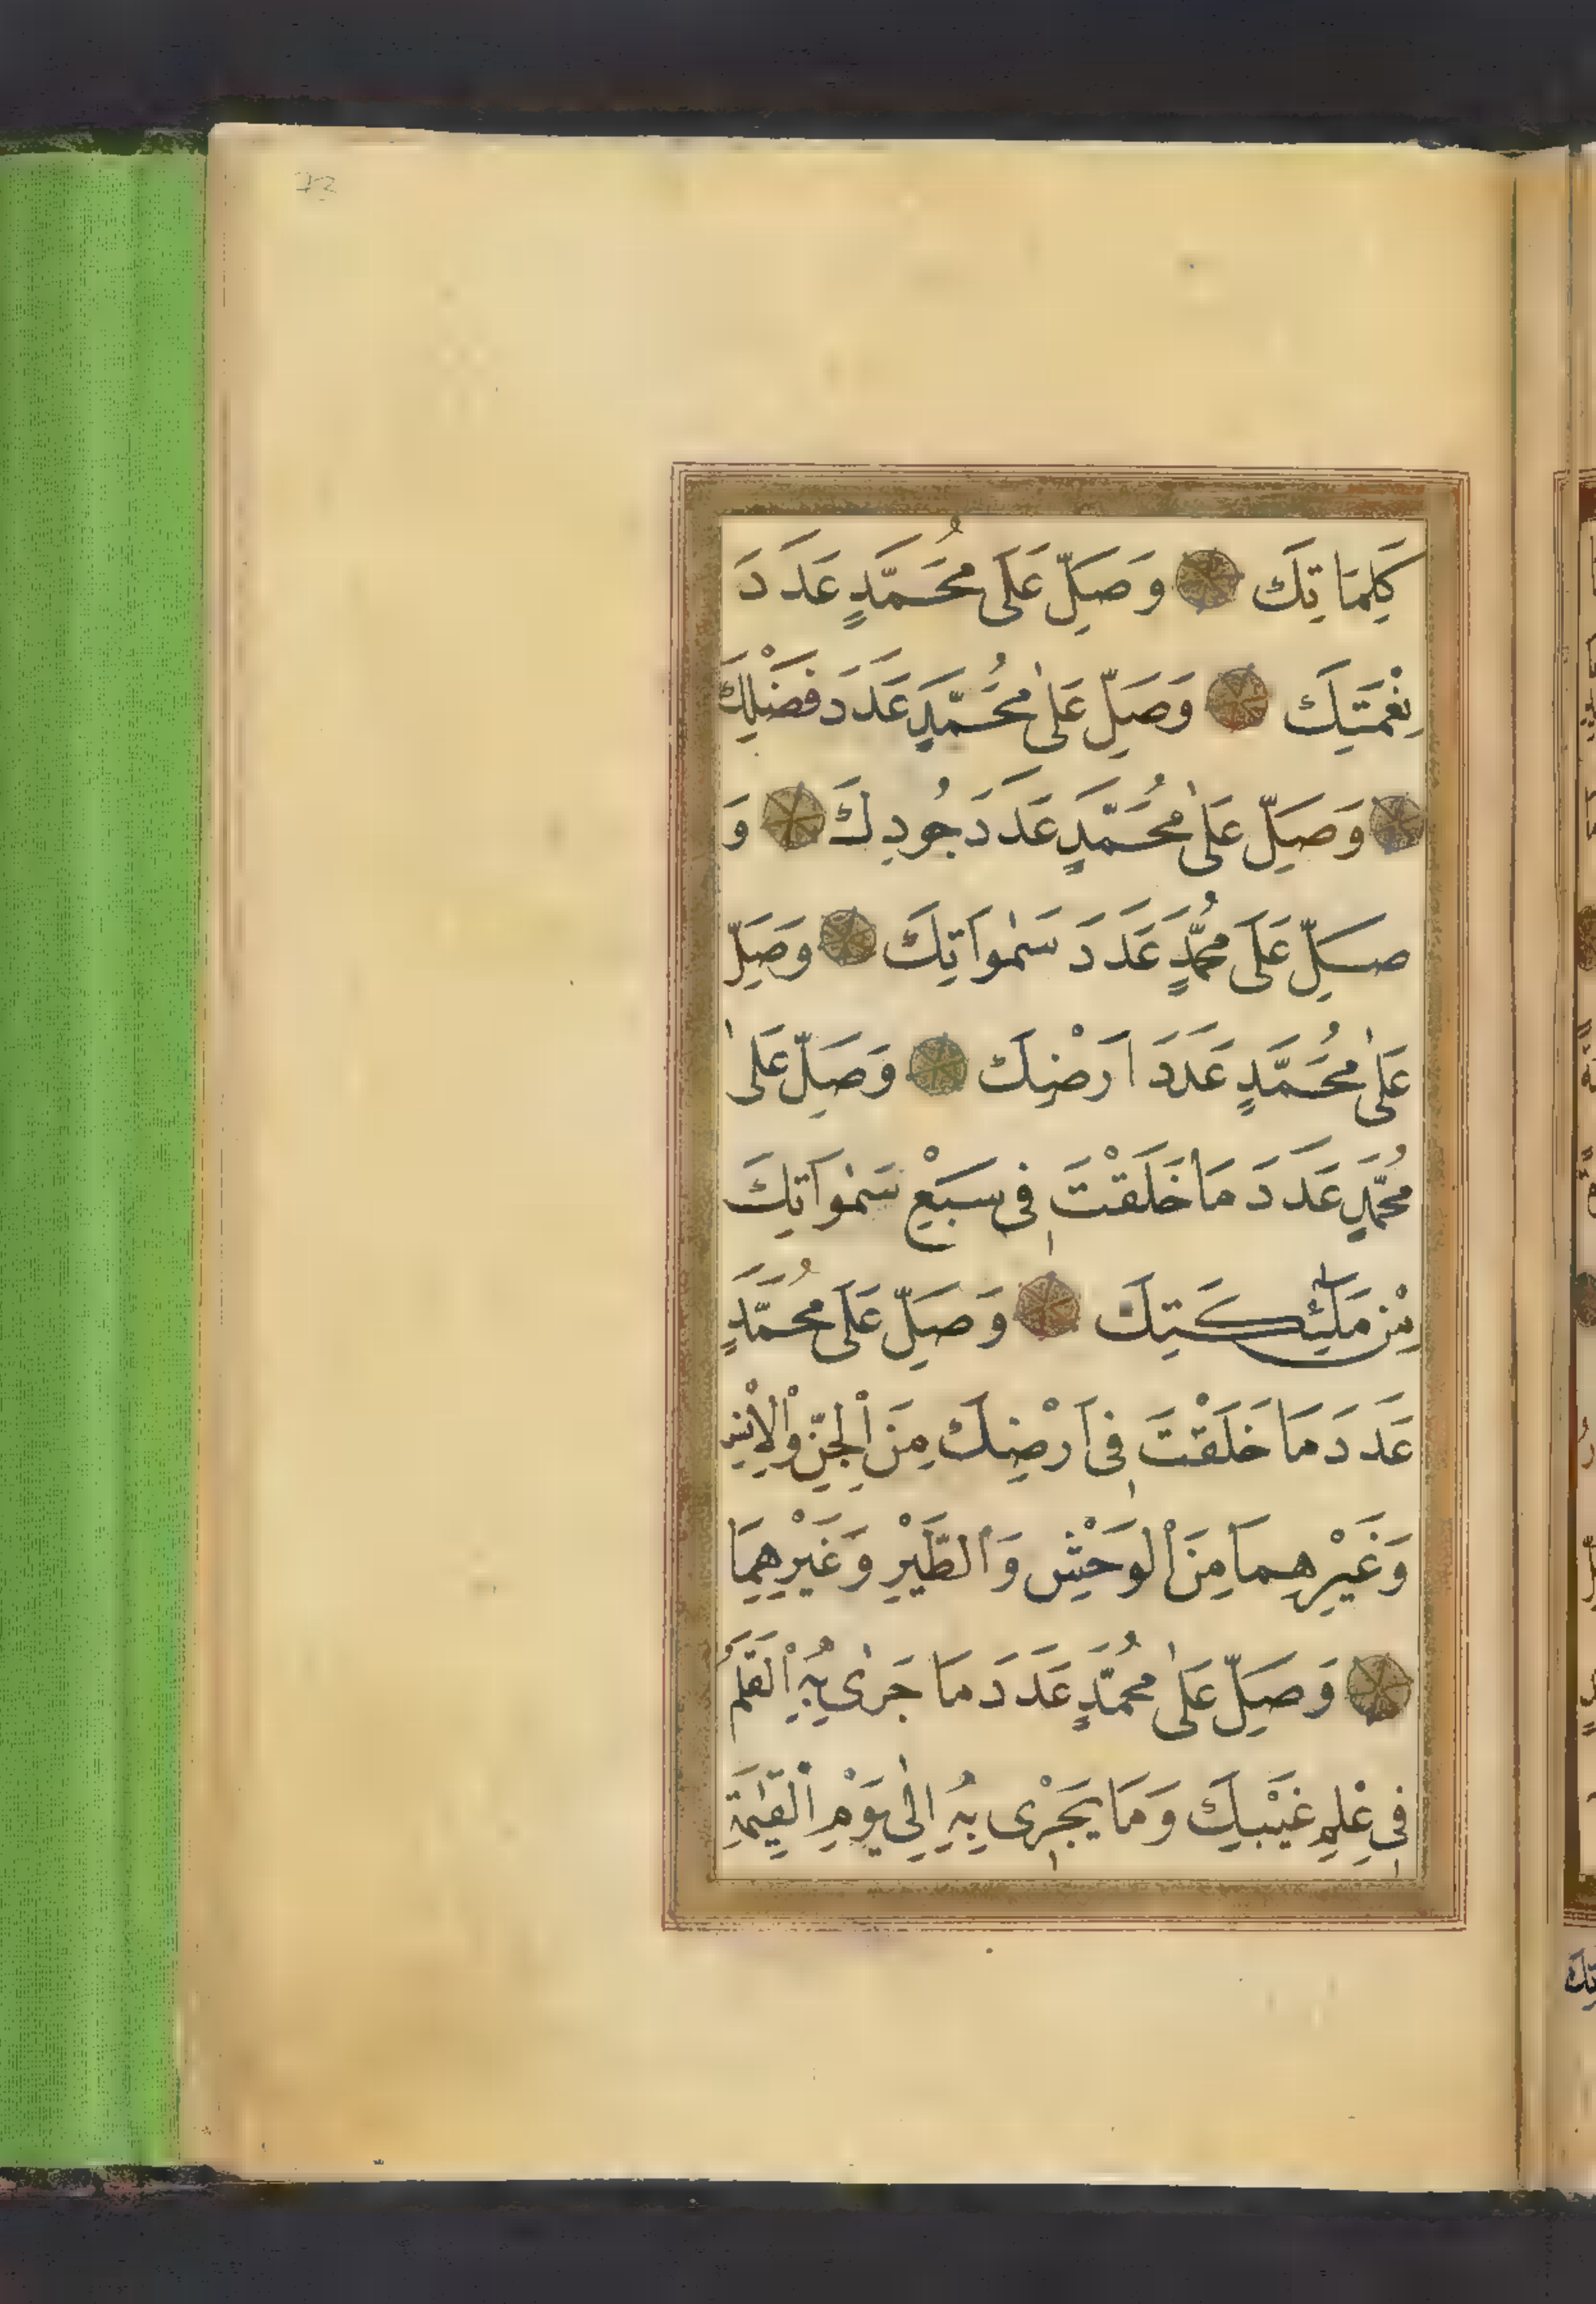 73
كَلِمَاتِكَ وَصَلِّ عَلَى مُحَمَّدٍ عَدَدَ
نِعْمَتِكَ وَصَلِّ عَلٰى مُحَمَّدٍ عَدَدَ فَضْلِكَ
وَصَلِّ عَلٰى مُحَمَّدٍ عَدَدَ جُودِكَ وَ
صَلِّ عَلَى مُحَمَّدٍ عَدَدَ سَمٰوَاتِكَ وَصَلِّ
عَلٰى مُحَمَّدٍ عَدَدَ اَرْضِكَ وَصَلِّ عَلٰى
مُحَمَّدٍ عَدَدَ مَا خَلَقْتَ فِى سَبْعِ سَمٰوَاتِكَ
مِنْ مَلٰٓئِكَتِكَ وَصَلِّ عَلَى مُحَمَّدٍ
عَدَدَ مَا خَلَقْتَ فِى اَرْضِكَ مِنَ الْجِنِّ وَالْاِنْسِ
وَغَيْرِهِمَا مِنَ الْوَحْشِ وَالطَّيْرِ وَغَيْرِهِمَا
وَصَلِّ عَلٰى مُحَمَّدٍ عَدَدَ مَا جَرٰى بِهِ الْقَلَمُ
فِى عِلْمِ غَيْبِكَ وَمَا يَجْرِى بِهِ اِلٰى يَوْمِ الْقِيٰمَةِ